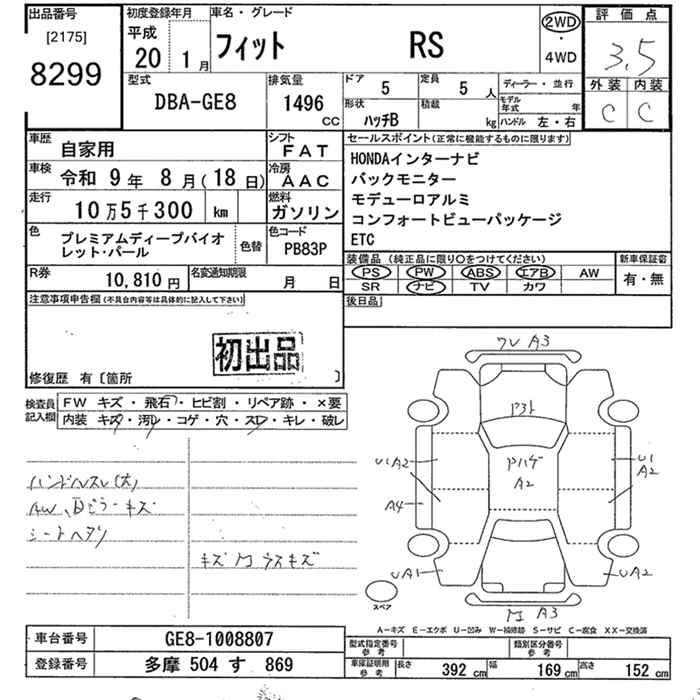 出品番号
[2175]
8299
初度登録年月
平成
20 1月
車名・グレード
フィット RS
2WD
・
4WD
評価点
3.5
外装 内装
C C
型式
DBA-GE8
排気量
1496
CC
ドア 5
定員 5 人
形状 ハッチB
積載 kg
ディーラー・並行
モデル年式 年
ハンドル 左・右
車歴 自家用
シフト FAT
車検 令和 9年 8月(18日)
冷房 AAC
走行 10万5千300 km
燃料 ガソリン
色 プレミアムディープバイオ
レット・パール
色替
色コード PB83P
R券 10,810円
名変通知期限 月 日
セールスポイント(正常に機能するものに限ります)
HONDAインターナビ
バックモニター
モデューロアルミ
コンフォートビューパッケージ
ETC
装備品(純正品に限り○をつけてください)
PS PW ABS エアB AW
SR ナビ TV カワ
新車保証書
有・無
後日品
注意事項申告欄(不具合内容等は具体的に記入して下さい)
初出品
修復歴 有〔箇所 〕
検査員記入欄
FW キズ・飛石・ヒビ割・リペア跡・×要
内装 キズ・汚レ・コゲ・穴・スレ・キレ・破レ
ハンドルスレ(大)
AW、
シートヘタリ
キズ
ワレ A3
U1 A2
A4
UA1
A2
U1
A2
UA2
A3
スペア
A-キズ E-エクボ U-凹み W-補修跡 S-サビ C-腐食 XX-交換済
車台番号 GE8-1008807
登録番号 多摩 504 す 869
型式指定番号
参考
類別区分番号
参考
車庫証明用
参考
長さ 392 cm
幅 169 cm
高さ 152 cm